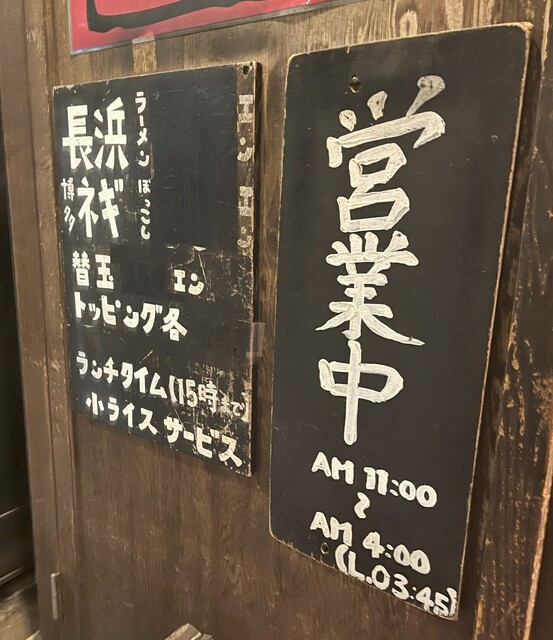 長浜ラーメン エン
博多ネギぼっこし エン
替玉 エン
トッピング各
ランチタイム(15時まで)
小ライスサービス
営業中
AM 11:00
～
AM 4:00
(L.O3:45)